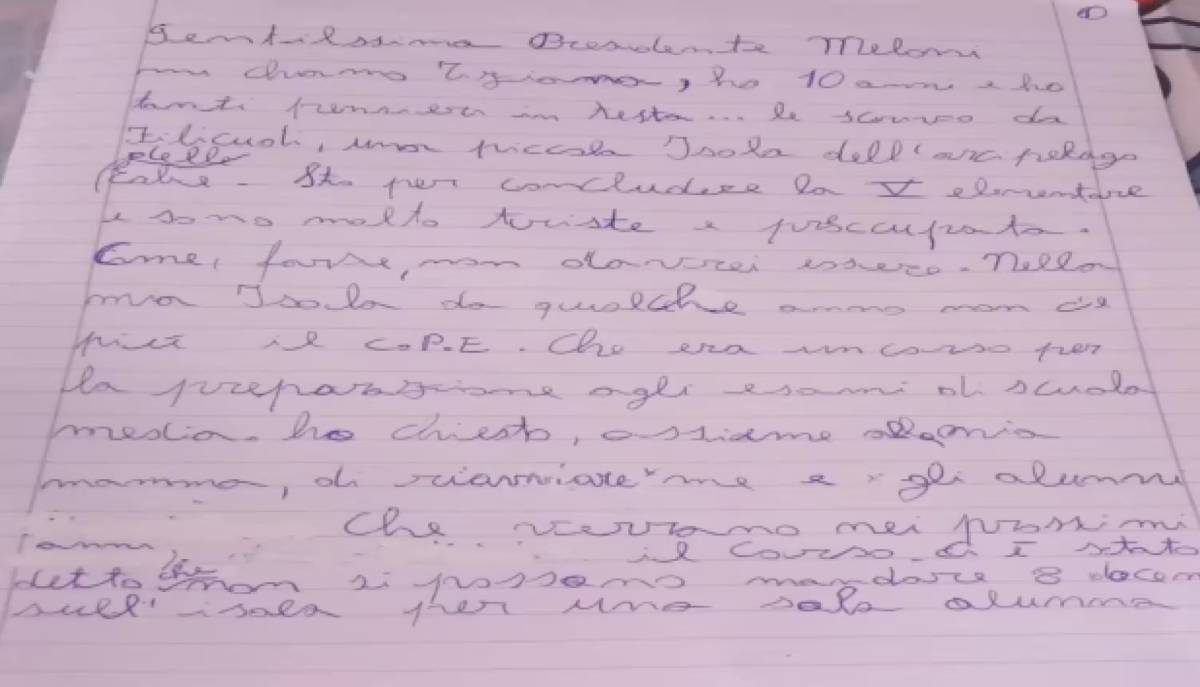 ①
Gentilssima Presidente Meloni
mi chiamo Tiziana, ho 10 anni e ho
tanti pensieri in testa... le scrivo da
Filicudi, una piccola Isola dell'arcipelago
delle
Eolie. Sto per concludere la V elementare
e sono molto triste e preoccupata.
Come, forse, non dovrei essere. Nella
mia Isola da qualche anno non c'è
più il C.P.E. Che era un corso per
la preparazione agli esami di scuola
media. ho chiesto, assieme alla mia
mamma, di riavviare me e gli alunni
che verrano nei prossimi
anni, il corso. Ci è stato
detto che non si possono mandare 8 docen
sull'isola per una sola alunna